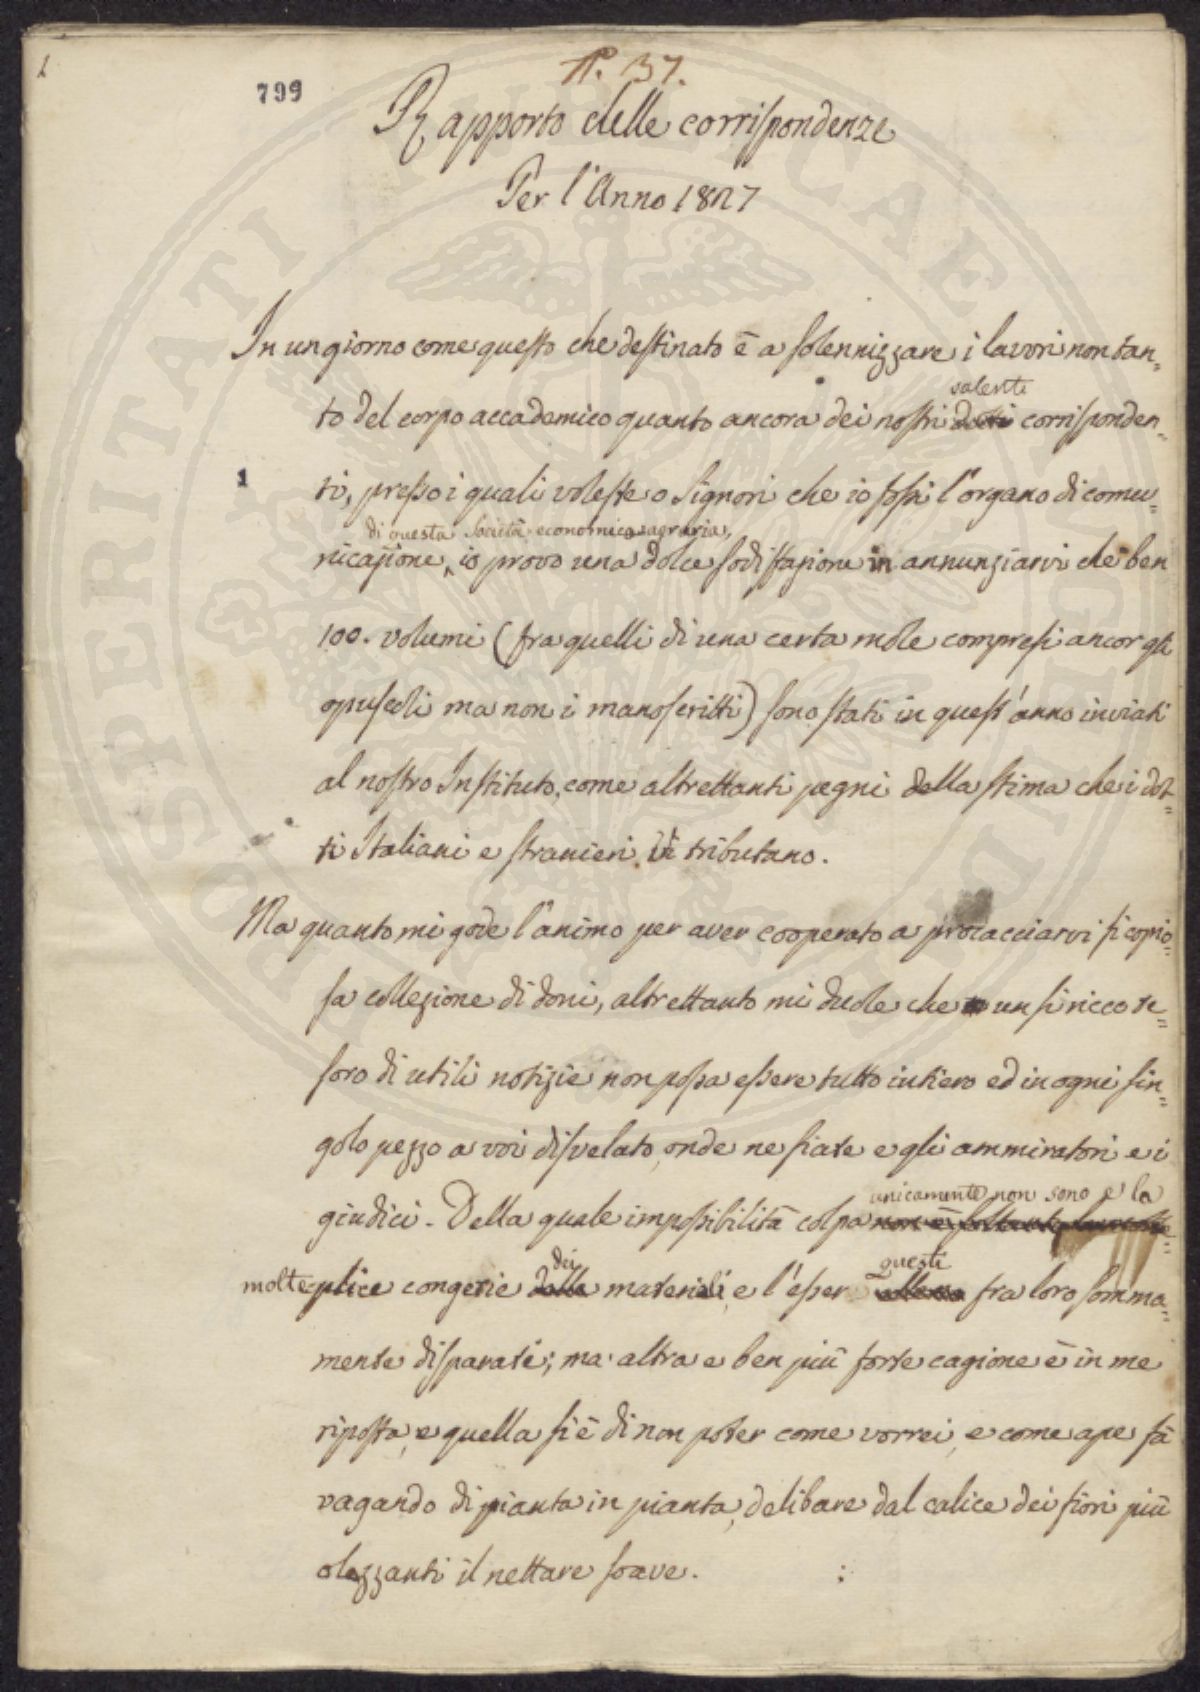 1
799
N. 37.
Rapporto delle corrispondenze
Per l'Anno 1827
In un giorno come questo che destinato è a solennizzare i lavori non tan=
valenti
to del corpo accademico quanto ancora dei nostri dotti corrisponden=
1
ti, presso i quali voleste o Signori che io fossi l'organo di comu=
di questa Società economico agraria,
nicazione, io provo una dolce sodisfazione in annunziarvi che ben
100. volumi (fra quelli di una certa mole compresi ancor gli
opuscoli ma non i manoscritti) sono stati in quest'anno inviati
al nostro Instituto, come altrettanti pegni della stima che i dot=
ti Italiani e stranieri vi tributano.
Ma quanto mi gode l'animo per aver cooperato a procacciarvi sì copio=
sa collezione di doni, altrettanto mi duole che un sì ricco te=
soro di utili notizie non possa essere tutto intiero ed in ogni sin=
golo pezzo a voi disvelato, onde ne siate e gli ammiratori e i
unicamente non sono e la
giudici. Della quale impossibilità colpa non è soltanto la
dei questi
molteplice congerie delle materiali, e l'esser fra loro somma=
mente disparati; ma altra e ben più forte cagione è in me
riposta, e quella si è di non poter come vorrei, e come ape fà
vagando di pianta in pianta, delibare dal calice dei fiori più
olezzanti il nettare soave.
PROSPERITATI PUBLICAE AUGENDAE